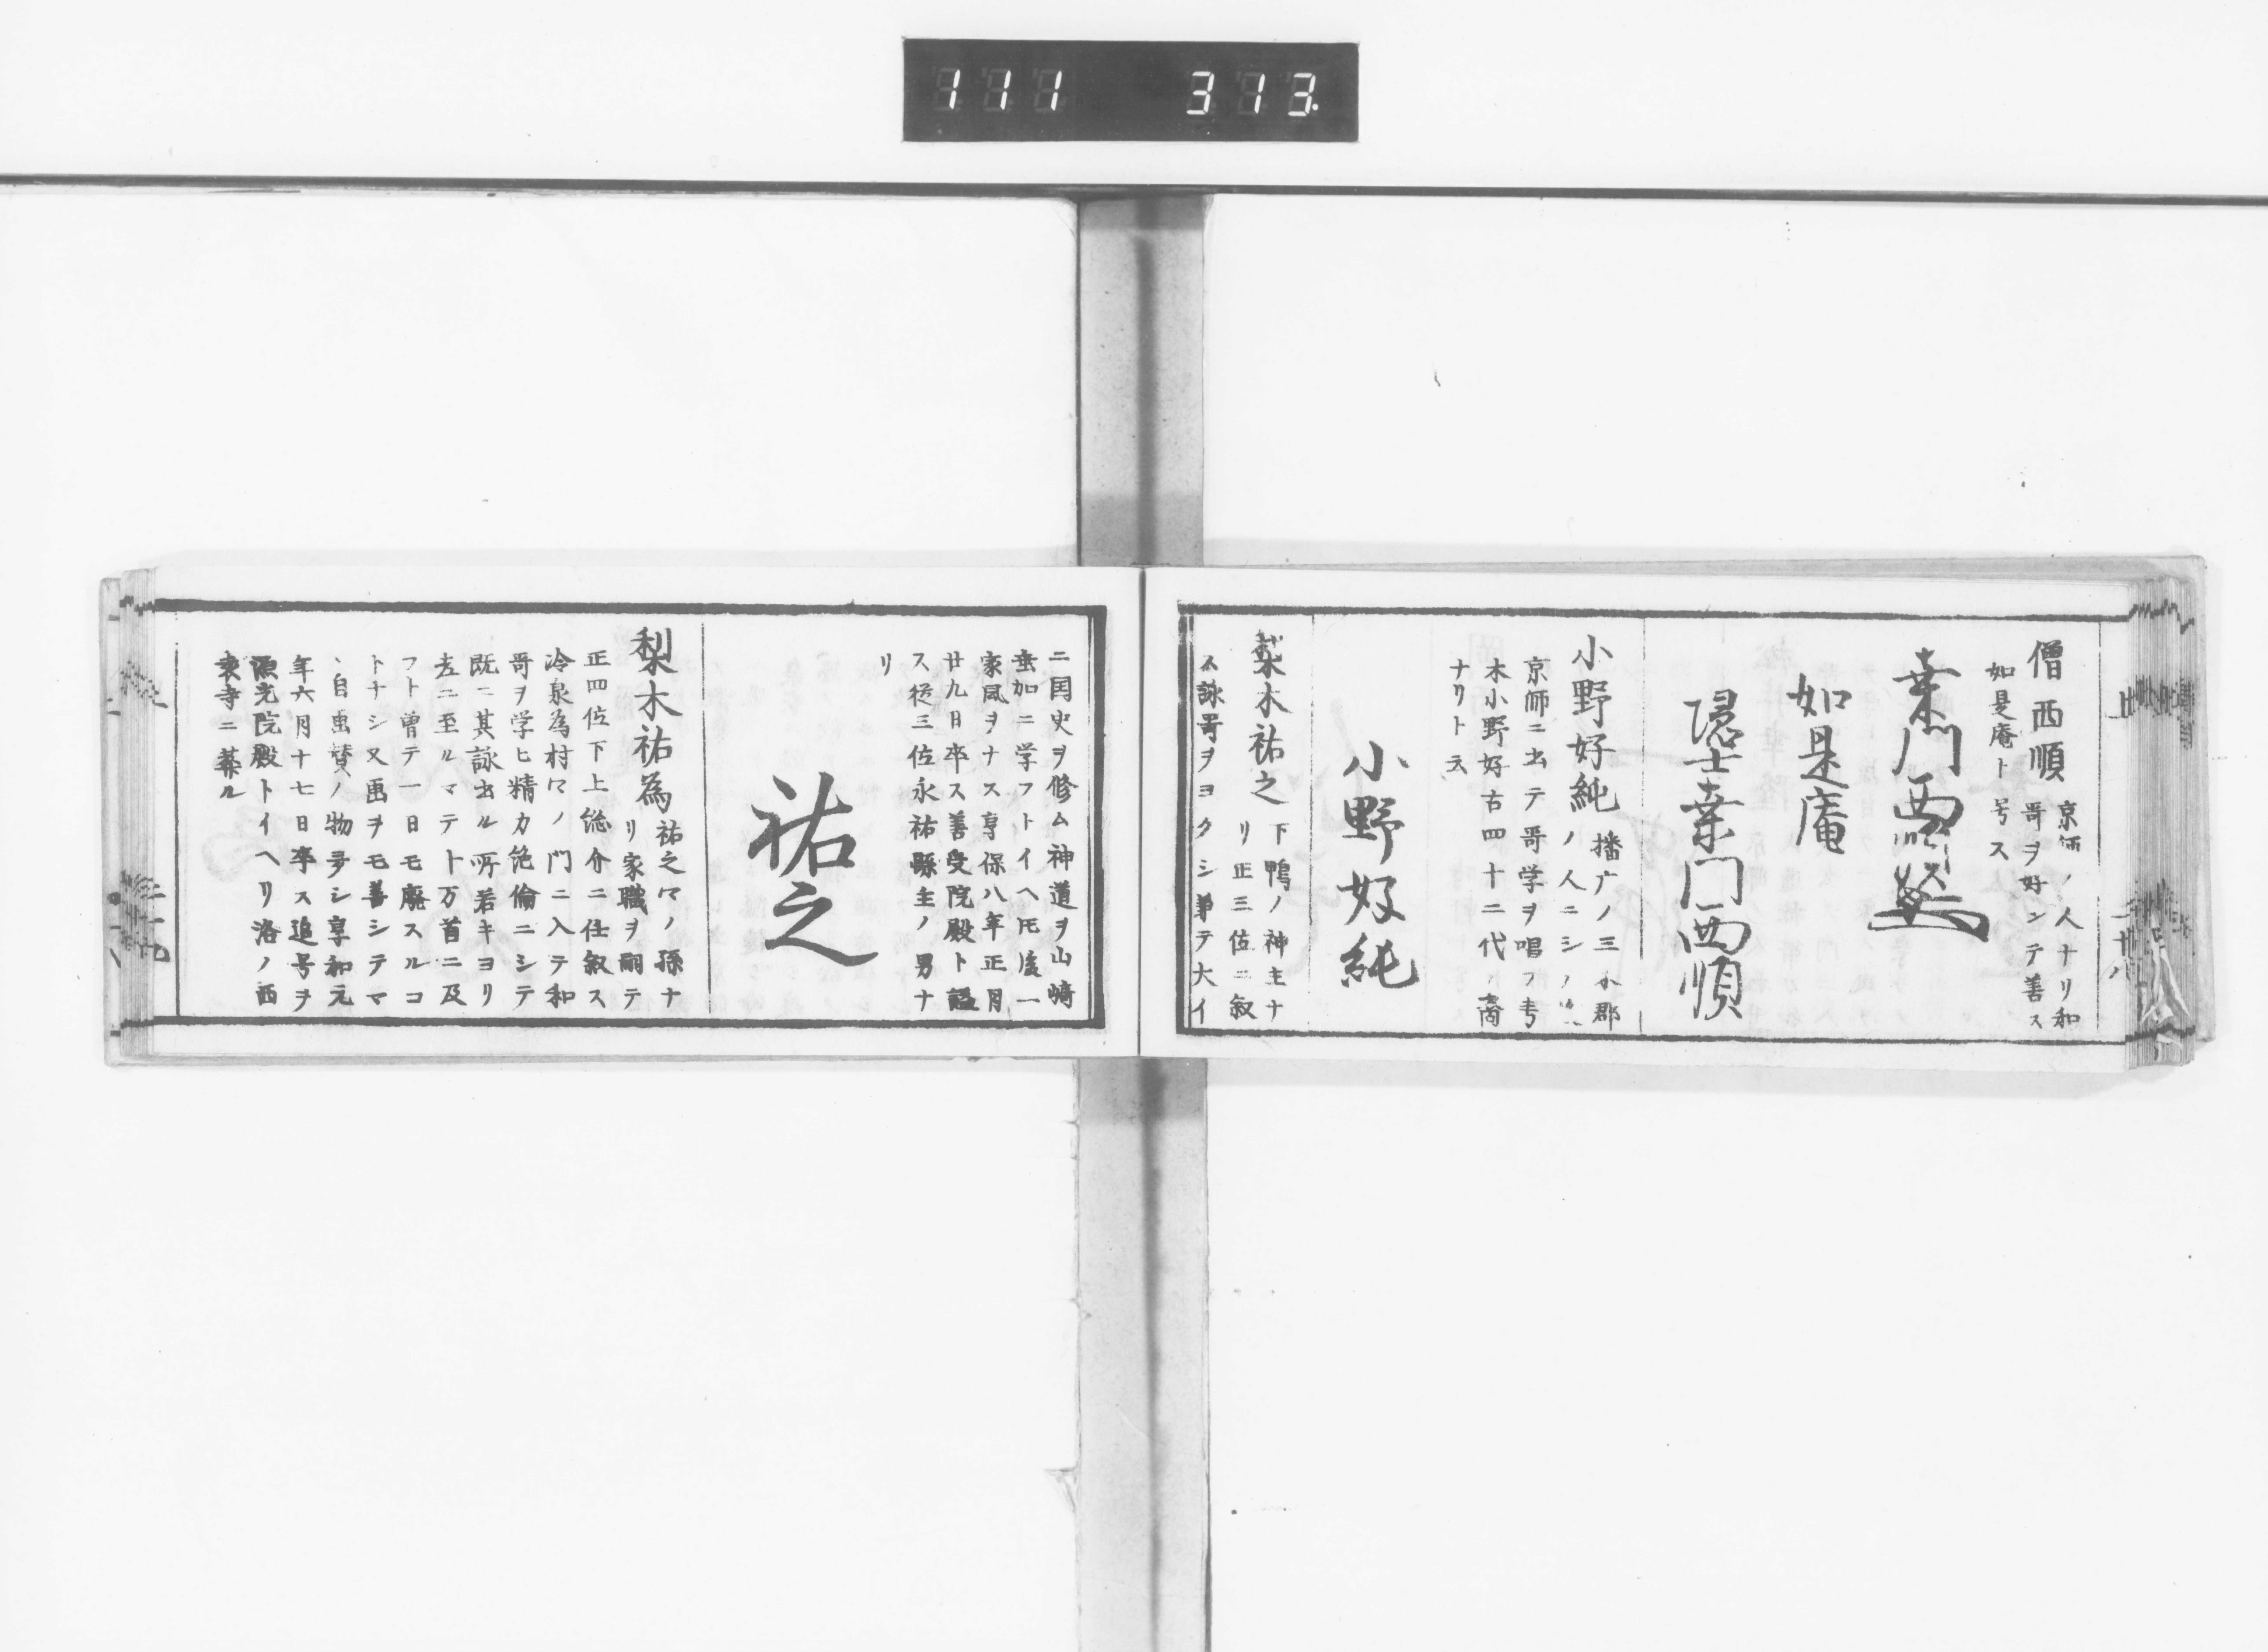 111 313.
僧西順 京師ノ人ナリ和
哥ヲ好ンテ善ス
如是庵ト号ス
桑門西順
如是庵
隠士桑門西順
小野好純 播广ノ三木郡
ノ人ニシ
京師ニ出テ哥学ヲ唱フ
木小野好古四十二代ノ裔
ナリト云
小野好純
梨木祐之 下鴨ノ神主ナ
リ正三位ニ叙
ス詠哥ヲヨクシ兼テ大イ
ニ国史ヲ修ム神道ヲ山崎
垂加ニ学フトイヘ𪜈後一
家風ヲナス享保八年正月
廿九日卒ス善受院殿ト謚
ス従三位永祐縣主ノ男ナ
リ
祐之
梨木祐為 祐之ノ孫ナ
リ家職ヲ嗣テ
正四位下上総介ニ任叙ス
冷泉為村ノ門ニ入テ和
哥ヲ学ヒ精力絶倫ニシテ
既ニ其詠出ル所若キヨリ
老ニ至ルマテ十万首ニ及
フト曽テ一日モ廃スルコ
トナシ又画ヲモ善シテマ
ヽ自画賛ノ物多シ享和元
年六月十七日卒ス追号ヲ
源光院殿トイヘリ洛ノ西
裏寺ニ葬ル